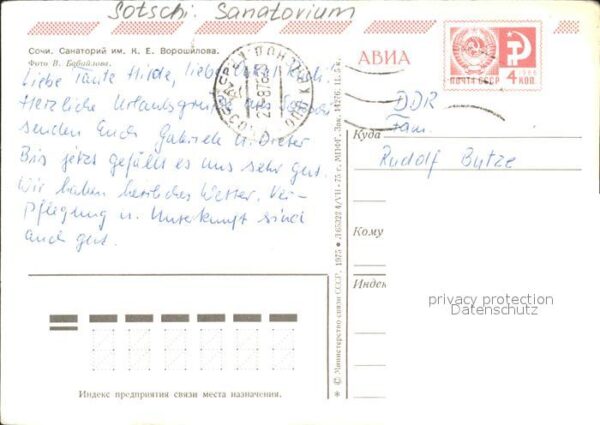 Sotschi: Sanatorium
Сочи. Санаторий им. К. Е. Ворошилова.
Фото В. Бабайлова.
Liebe Tante Hilde, liebe
Herzliche Urlaubsgrüße aus
senden Euch Gabriele u. Dieter
Bis jetzt gefällt es uns sehr gut.
Wir haben herrliches Wetter. Ver-
pflegung u. Unterkunft sind
auch gut.
АВИА
ПОЧТА СССР 4 КОП.
1966
DDR
Куда
Fam.
Rudolf Butze
Кому
Индекс
privacy protection
Datenschutz
© Министерство связи СССР, 1975 • 4/VII-75 г. МПФГ. Зак. Ц. 5 к.
Индекс предприятия связи места назначения.